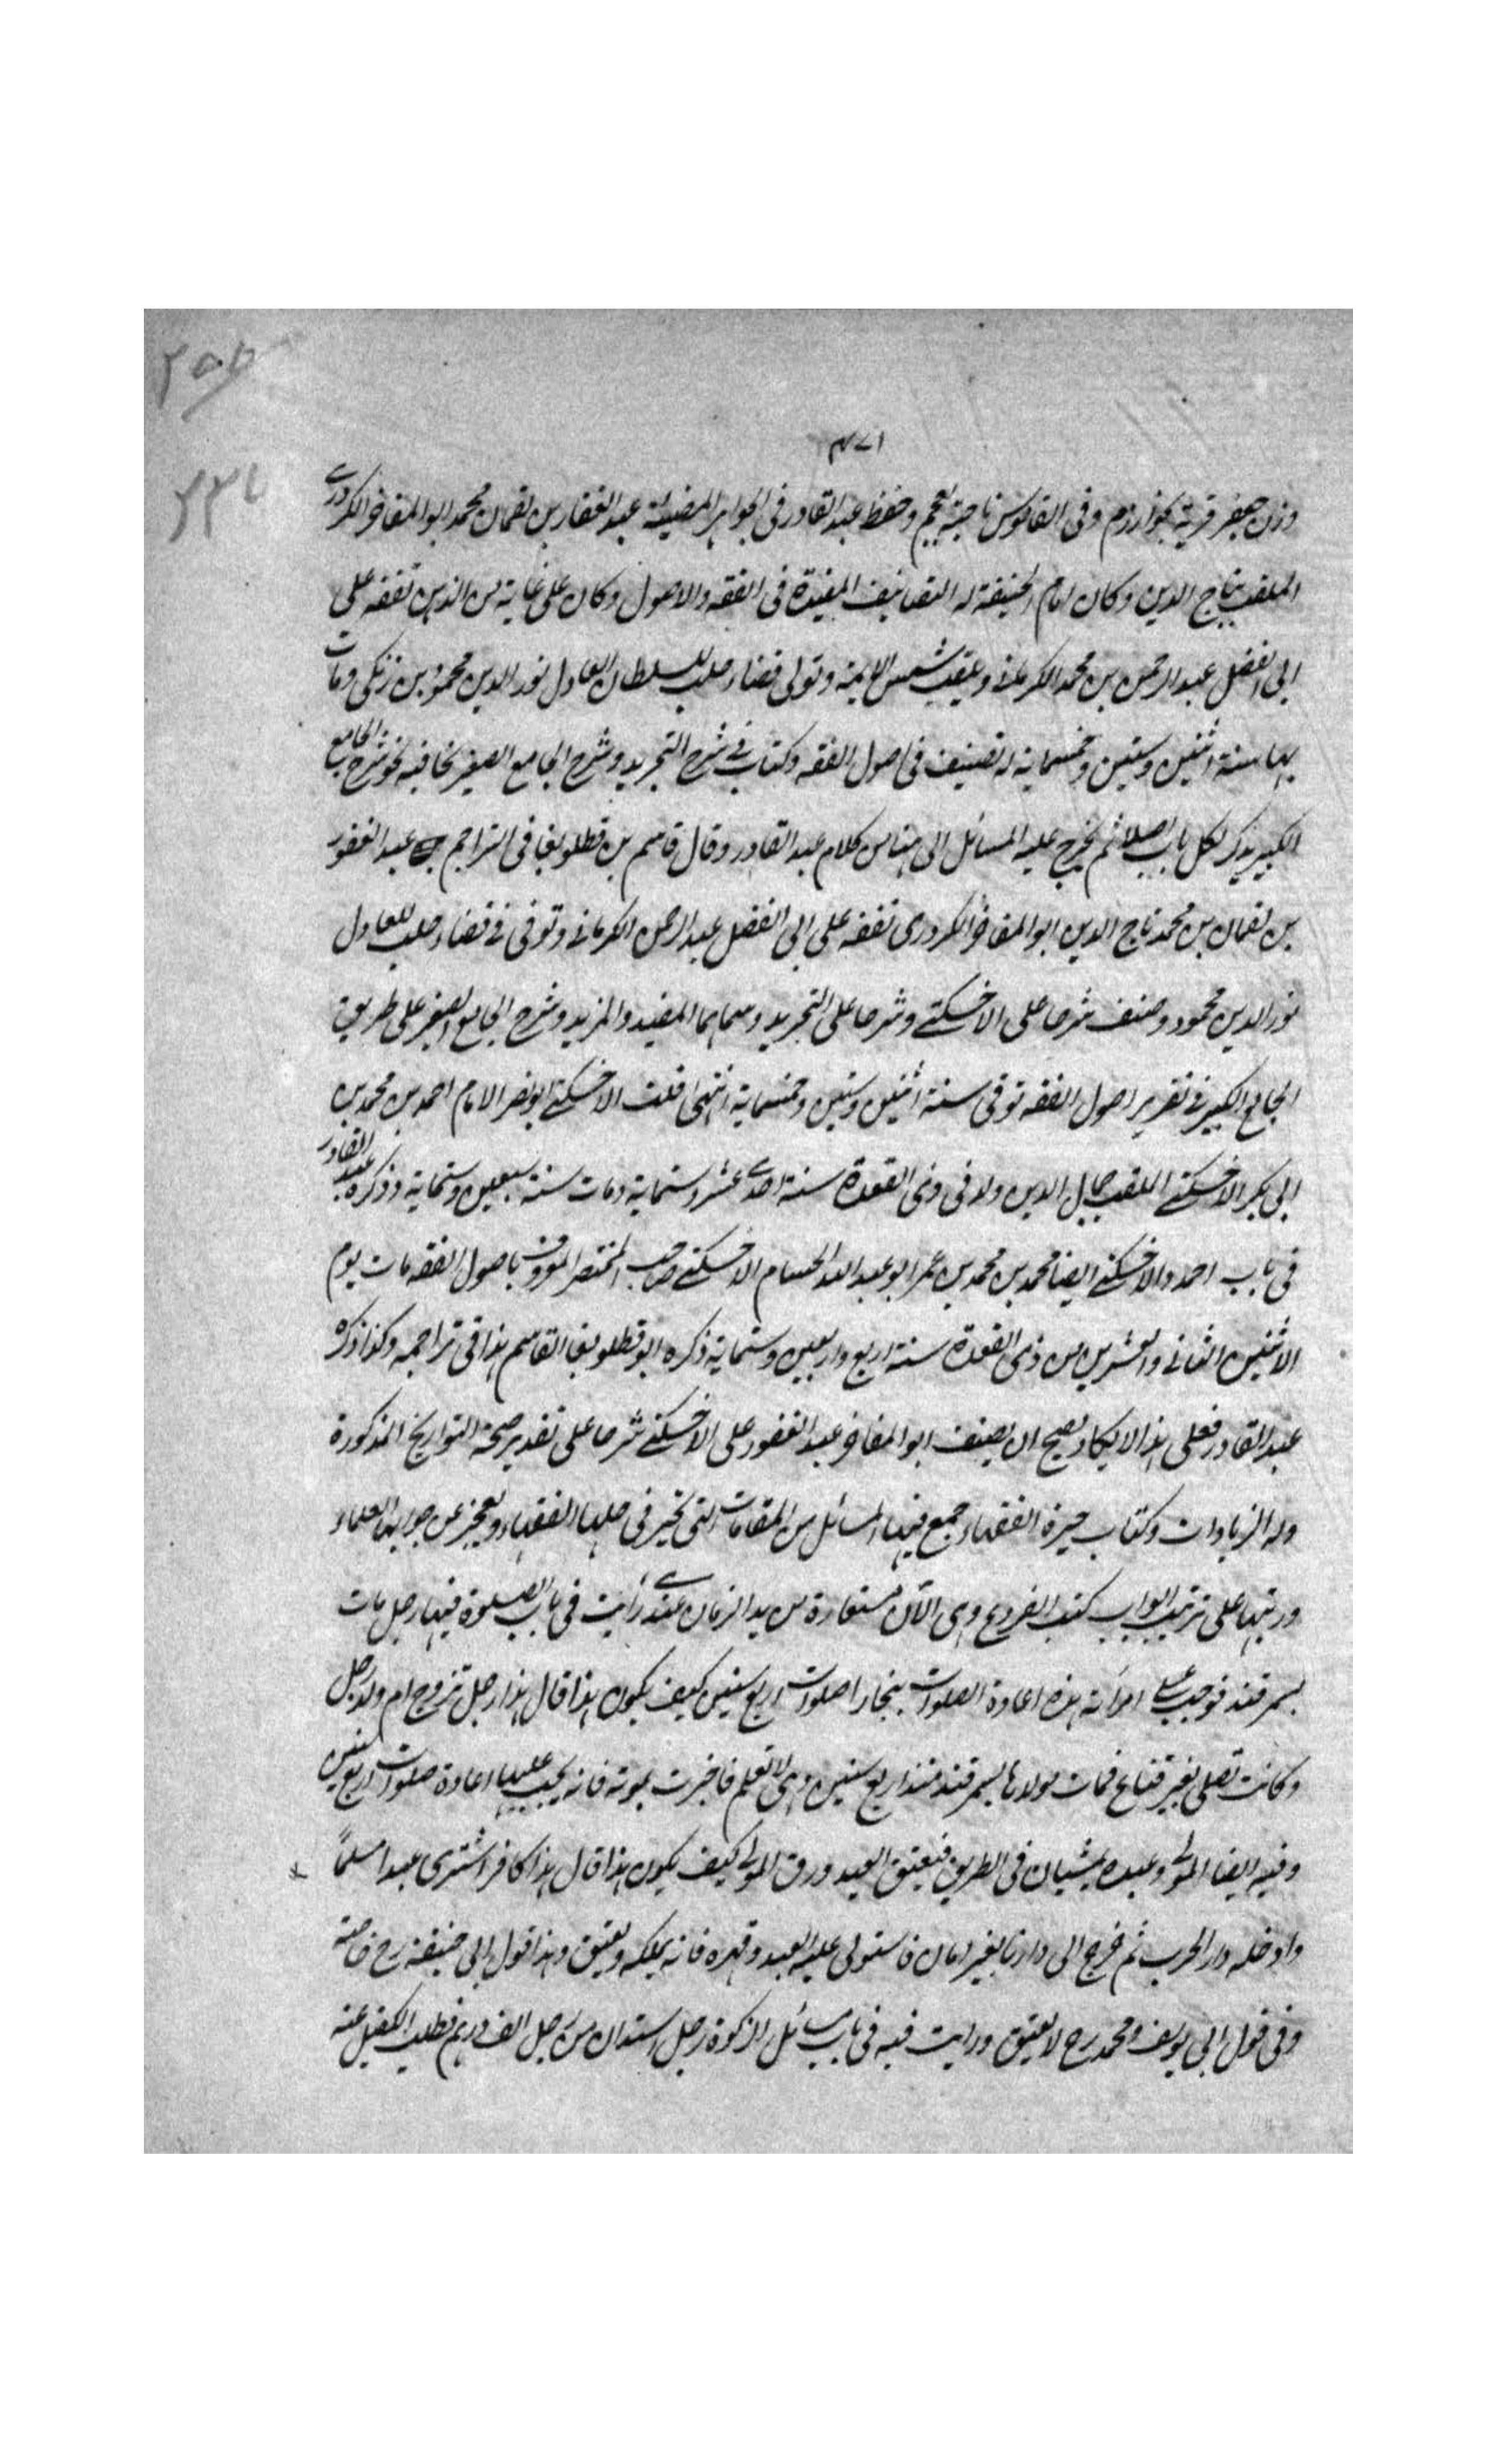 ٤٧١
وزن جعفر قرية بخوارزم وفى القاموس ناحية بالعجم وحفظ عبد القادر فى الجواهر المضيئة عبد الغفار بن لقمان محمد ابو المفاخر الكردرى
الملقب بتاج الدين وكان امام الحنيفة له التصانيف المفيدة فى الفقه والاصول وكان على غاية من الدين تفقه على
ابى الفضل عبد الرحمن بن محمد الكرمانى ويلقب شمس الايمة وتولى قضاء حلب للسلطان العادل نور الدين محمود بن زنكى ومات
بها سنة اثنين وستين وخمسماية له تصنيف فى اصول الفقه وكتاب فى شرح التجريد وشرح الجامع الصغير نحا فيه نحو شرح الجامع
الكبير يذكر لكل باب اصلا ثم يخرج عليه المسائل الى هنا من كلام عبد القادر وقال قاسم بن قطلوبغا فى التراجم عبد الغفور
بن لقمان بن محمد تاج الدين ابو المفاخر الكردرى تفقه على ابى الفضل عبد الرحمن الكرمانى وتوفى فى قضاء حلب للعادل
نور الدين محمود وصنف شرحا على الاخسيكتى وشرحا على التجريد وسماهما المفيد والمزيد وشرح الجامع الصغير على طريق
الجامع الكبير فى تقرير اصول الفقه توفى سنة اثنين وستين وخمسماية انتهى قلت الاخسيكتى ابو نصر الامام احمد بن محمد بن
ابى بكر الاخسيكتى الملقب جمال الدين ولد فى ذى القعدة سنة احدى عشر وستماية ومات سنة سبعين وستماية وذكره عبد القادر
فى باب احمد والاخسيكتى ايضا محمد بن محمد بن عمر ابو عبد الله الحسام الاخسيكتى صاحب المختصر المعروف باصول الفقه مات يوم
الاثنين الثانى والعشرين من ذى القعدة سنة اربع واربعين وستماية ذكره ابو قطلوبغا القاسم هذا فى تراجمه وكذا ذكره
عبد القادر فعلى هذا لا يكاد يصح ان يصنف ابو المفاخر عبد الغفور على الاخسيكتى شرحا على تقدير صحة التواريخ المذكورة
وله الزيادات وكتاب حيرة الفقهاء جمع فيها المسائل من المقامات التى تحير فى حلها الفقهاء ويعجز عن جوابها العلماء
ورتبها على ترتيب ابواب كتب الفروع وهى الآن مستعارة من يد الزمان عندى رأيت فى باب الصلوة فيها رجل مات
بسمرقند فوجب على امرأته هذه اعادة الصلوات ببخارا صلوات اربع سنين كيف يكون هذا قال هذا رجل تزوج ام ولد رجل
وكانت تصلى بغير قناع فمات مولاها بسمرقند منذ اربع سنين وهى لا تعلم فاخبرت بموته فانه يجب عليها اعادة صلوات اربع سنين
وفيه ايضا المولى وعبده يمشيان فى الطريق فيعتق العبد ورق المولى كيف يكون هذا قال هذا كافر اشترى عبدا مسلماً
وادخله دار الحرب ثم خرج الى دارنا بغير امان فاستولى عليه العبد وقهره فانه يملكه ويعتق وهذا قول ابى حنيفة رح خاصة
وفى قول ابى يوسف ومحمد رح لا يعتق ورايت فيه فى باب مسائل الزكوة رجل استدان من رجل الف درهم فطلب الكفيل عنه